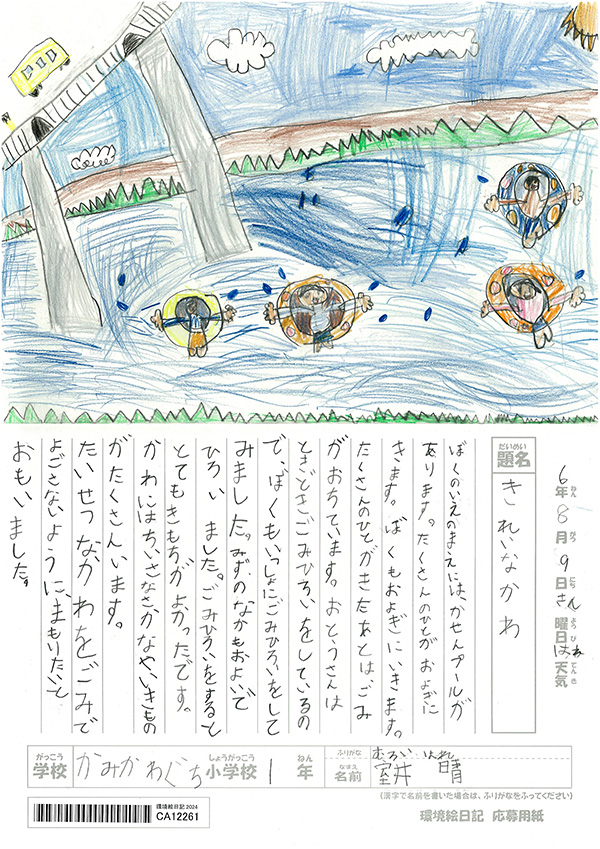 6年8月9日きん曜日はれ天気
ねん がつ にち ようび てんき
だいめい
題名 きれいなかわ
ぼくのいえのまえには、かせんプールが
あります。たくさんのひとが およぎに
きます。ぼくもおよぎにいきます。
たくさんのひとがきたあとは、ごみ
がおちています。おとうさんは
ときどきごみひろいをしているの
で、ぼくもいっしょにごみひろいをして
みました。みずのなかもおよいで
ひろいました。ごみひろいをすると
とてもきもちがよかったです。
かわにはちいさなさかなやいきもの
がたくさんいます。
たいせつなかわをごみで
よごさないようにまもりたいと
おもいました。
がっこう しょうがっこう ねん ふりがな むろい はれ
学校 かみかわぐち小学校 1年 なまえ 名前 室井 晴
(漢字で名前を書いた場合は、ふりがなをふってください)
環境絵日記 2024
CA12261
環境絵日記 応募用紙